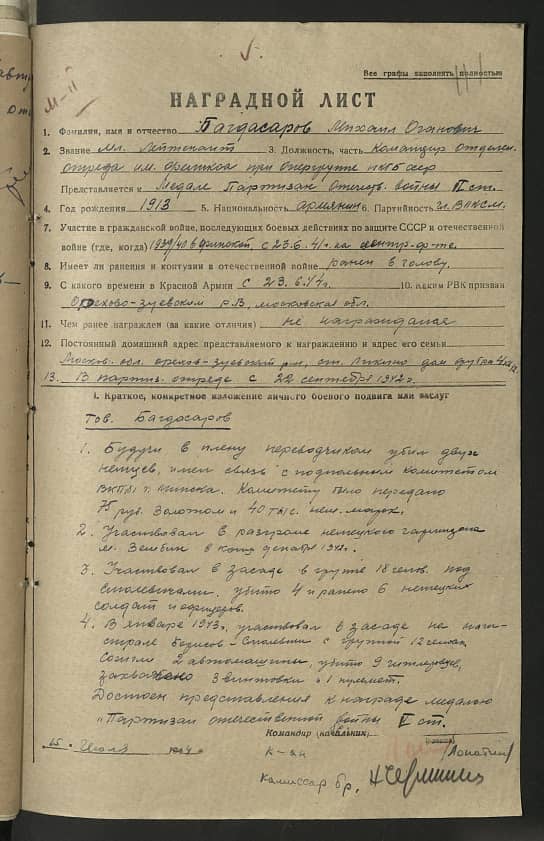 Все графы заполнять полностью
М-II
НАГРАДНОЙ ЛИСТ
1. Фамилия, имя и отчество Багдасаров Михаил Оганович
2. Звание Мл. Лейтенант 3. Должность, часть Командир отделен.
отряда им. Фрунзе при опергруппе
Представляется к Медале Партизан Отечеств. войны II ст.
4. Год рождения 1913 5. Национальность армянин 6. Партийность чл. ВЛКСМ.
7. Участие в гражданской войне, последующих боевых действиях по защите СССР и отечественной
войне (где, когда) 1939/40 в финской, с 23.6.41г. на центр. ф-те.
8. Имеет ли ранения и контузии в отечественной войне ранен в голову.
9. С какого времени в Красной Армии с 23.6.41г. 10. Каким РВК призван
Орехово-Зуевском Р.В., Московская обл.
11. Чем ранее награжден (за какие отличия) не награждался
12. Постоянный домашний адрес представляемого к награждению и адрес его семьи
Москов. обл. Орехов-Зуевский р-н, ст. Ликино дом
13. В партиз. отряде с 22 сентября 1942г.
I. Краткое, конкретное изложение личного боевого подвига или заслуг
Тов. Багдасаров
1. Будучи в плену переводчиком убил двух
немцев, имел связь с подпольным комитетом
ВКП(б) г. Минска. Комитету было передано
75 руб. золотом и 40 тыс. нем. марок.
2. Участвовал в разгроме немецкого гарнизона
м. Зембин в конце декабря 1942г.
3. Участвовал в засаде в группе 18 челов. под
Смолевичами. убито 4 и ранено 6 немецких
солдат и офицеров.
4. В январе 1943г. участвовал в засаде на маги-
страле Борисов-Смолевичи с группой 12 человек
Сожгли 2 автомашины, убито 9 гитлеровцев,
захвачено 3 винтовки и 1 пулемет.
Достоен представления к награде медалью
"Партизан отечественной войны II ст.
Командир (начальник)
15 Июля 1944г.
К-дн (Лопатин)
Комиссар бр.